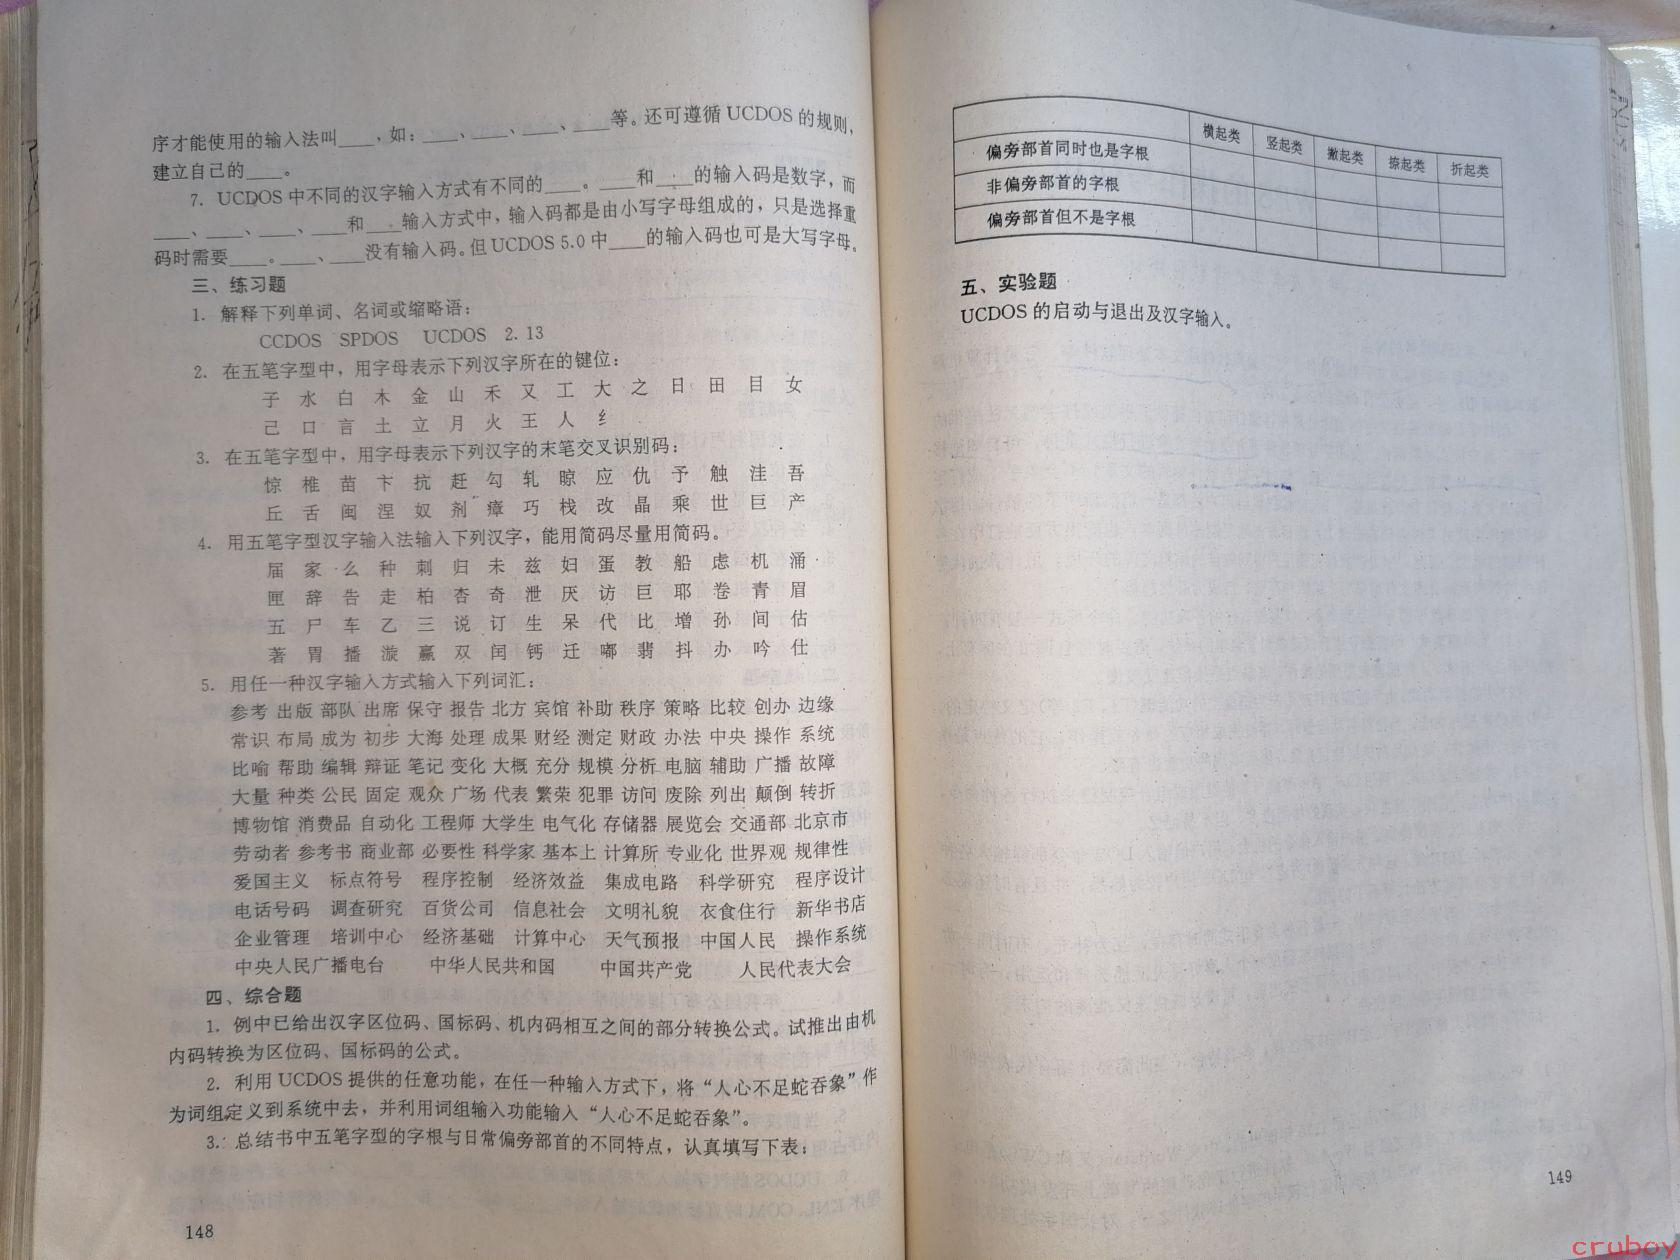 序才能使用的输入法叫____,如:____、____、____、____等。还可遵循 UCDOS 的规则,
建立自己的____。
7. UCDOS 中不同的汉字输入方式有不同的____。____和____的输入码是数字,而
____、____、____、____和____输入方式中,输入码都是由小写字母组成的,只是选择重
码时需要____。____、____没有输入码。但 UCDOS 5.0 中____的输入码也可是大写字母。
三、练习题
1. 解释下列单词、名词或缩略语:
CCDOS SPDOS UCDOS 2.13
2. 在五笔字型中,用字母表示下列汉字所在的键位:
子 水 白 木 金 山 禾 又 工 大 之 日 田 目 女
己 口 言 土 立 月 火 王 人 纟
3. 在五笔字型中,用字母表示下列汉字的末笔交叉识别码:
惊 椎 苗 卞 抗 赶 勾 轧 晾 应 仇 予 触 洼 吾
丘 舌 闽 涅 奴 剂 瘴 巧 栈 改 晶 乘 世 巨 产
4. 用五笔字型汉字输入法输入下列汉字,能用简码尽量用简码。
届 家 么 种 刺 归 未 兹 妇 蛋 教 船 虑 机 涌
匣 辞 告 走 柏 杏 奇 泄 厌 访 巨 耶 卷 青 眉
五 尸 车 乙 三 说 订 生 呆 代 比 增 孙 间 估
著 胃 播 漩 赢 双 闰 钙 迁 嘟 翡 抖 办 吟 仕
5. 用任一种汉字输入方式输入下列词汇:
参考 出版 部队 出席 保守 报告 北方 宾馆 补助 秩序 策略 比较 创办 边缘
常识 布局 成为 初步 大海 处理 成果 财经 测定 财政 办法 中央 操作 系统
比喻 帮助 编辑 辩证 笔记 变化 大概 充分 规模 分析 电脑 辅助 广播 故障
大量 种类 公民 固定 观众 广场 代表 繁荣 犯罪 访问 废除 列出 颠倒 转折
博物馆 消费品 自动化 工程师 大学生 电气化 存储器 展览会 交通部 北京市
劳动者 参考书 商业部 必要性 科学家 基本上 计算所 专业化 世界观 规律性
爱国主义 标点符号 程序控制 经济效益 集成电路 科学研究 程序设计
电话号码 调查研究 百货公司 信息社会 文明礼貌 衣食住行 新华书店
企业管理 培训中心 经济基础 计算中心 天气预报 中国人民 操作系统
中央人民广播电台 中华人民共和国 中国共产党 人民代表大会
四、综合题
1. 例中已给出汉字区位码、国标码、机内码相互之间的部分转换公式。试推出由机
内码转换为区位码、国标码的公式。
2. 利用 UCDOS 提供的任意功能,在任一种输入方式下,将“人心不足蛇吞象”作
为词组定义到系统中去,并利用词组输入功能输入“人心不足蛇吞象”。
3. 总结书中五笔字型的字根与日常偏旁部首的不同特点,认真填写下表:
148
横起类 竖起类 撇起类 捺起类 折起类
偏旁部首同时也是字根
非偏旁部首的字根
偏旁部首但不是字根
五、实验题
UCDOS 的启动与退出及汉字输入。
149
cruboy